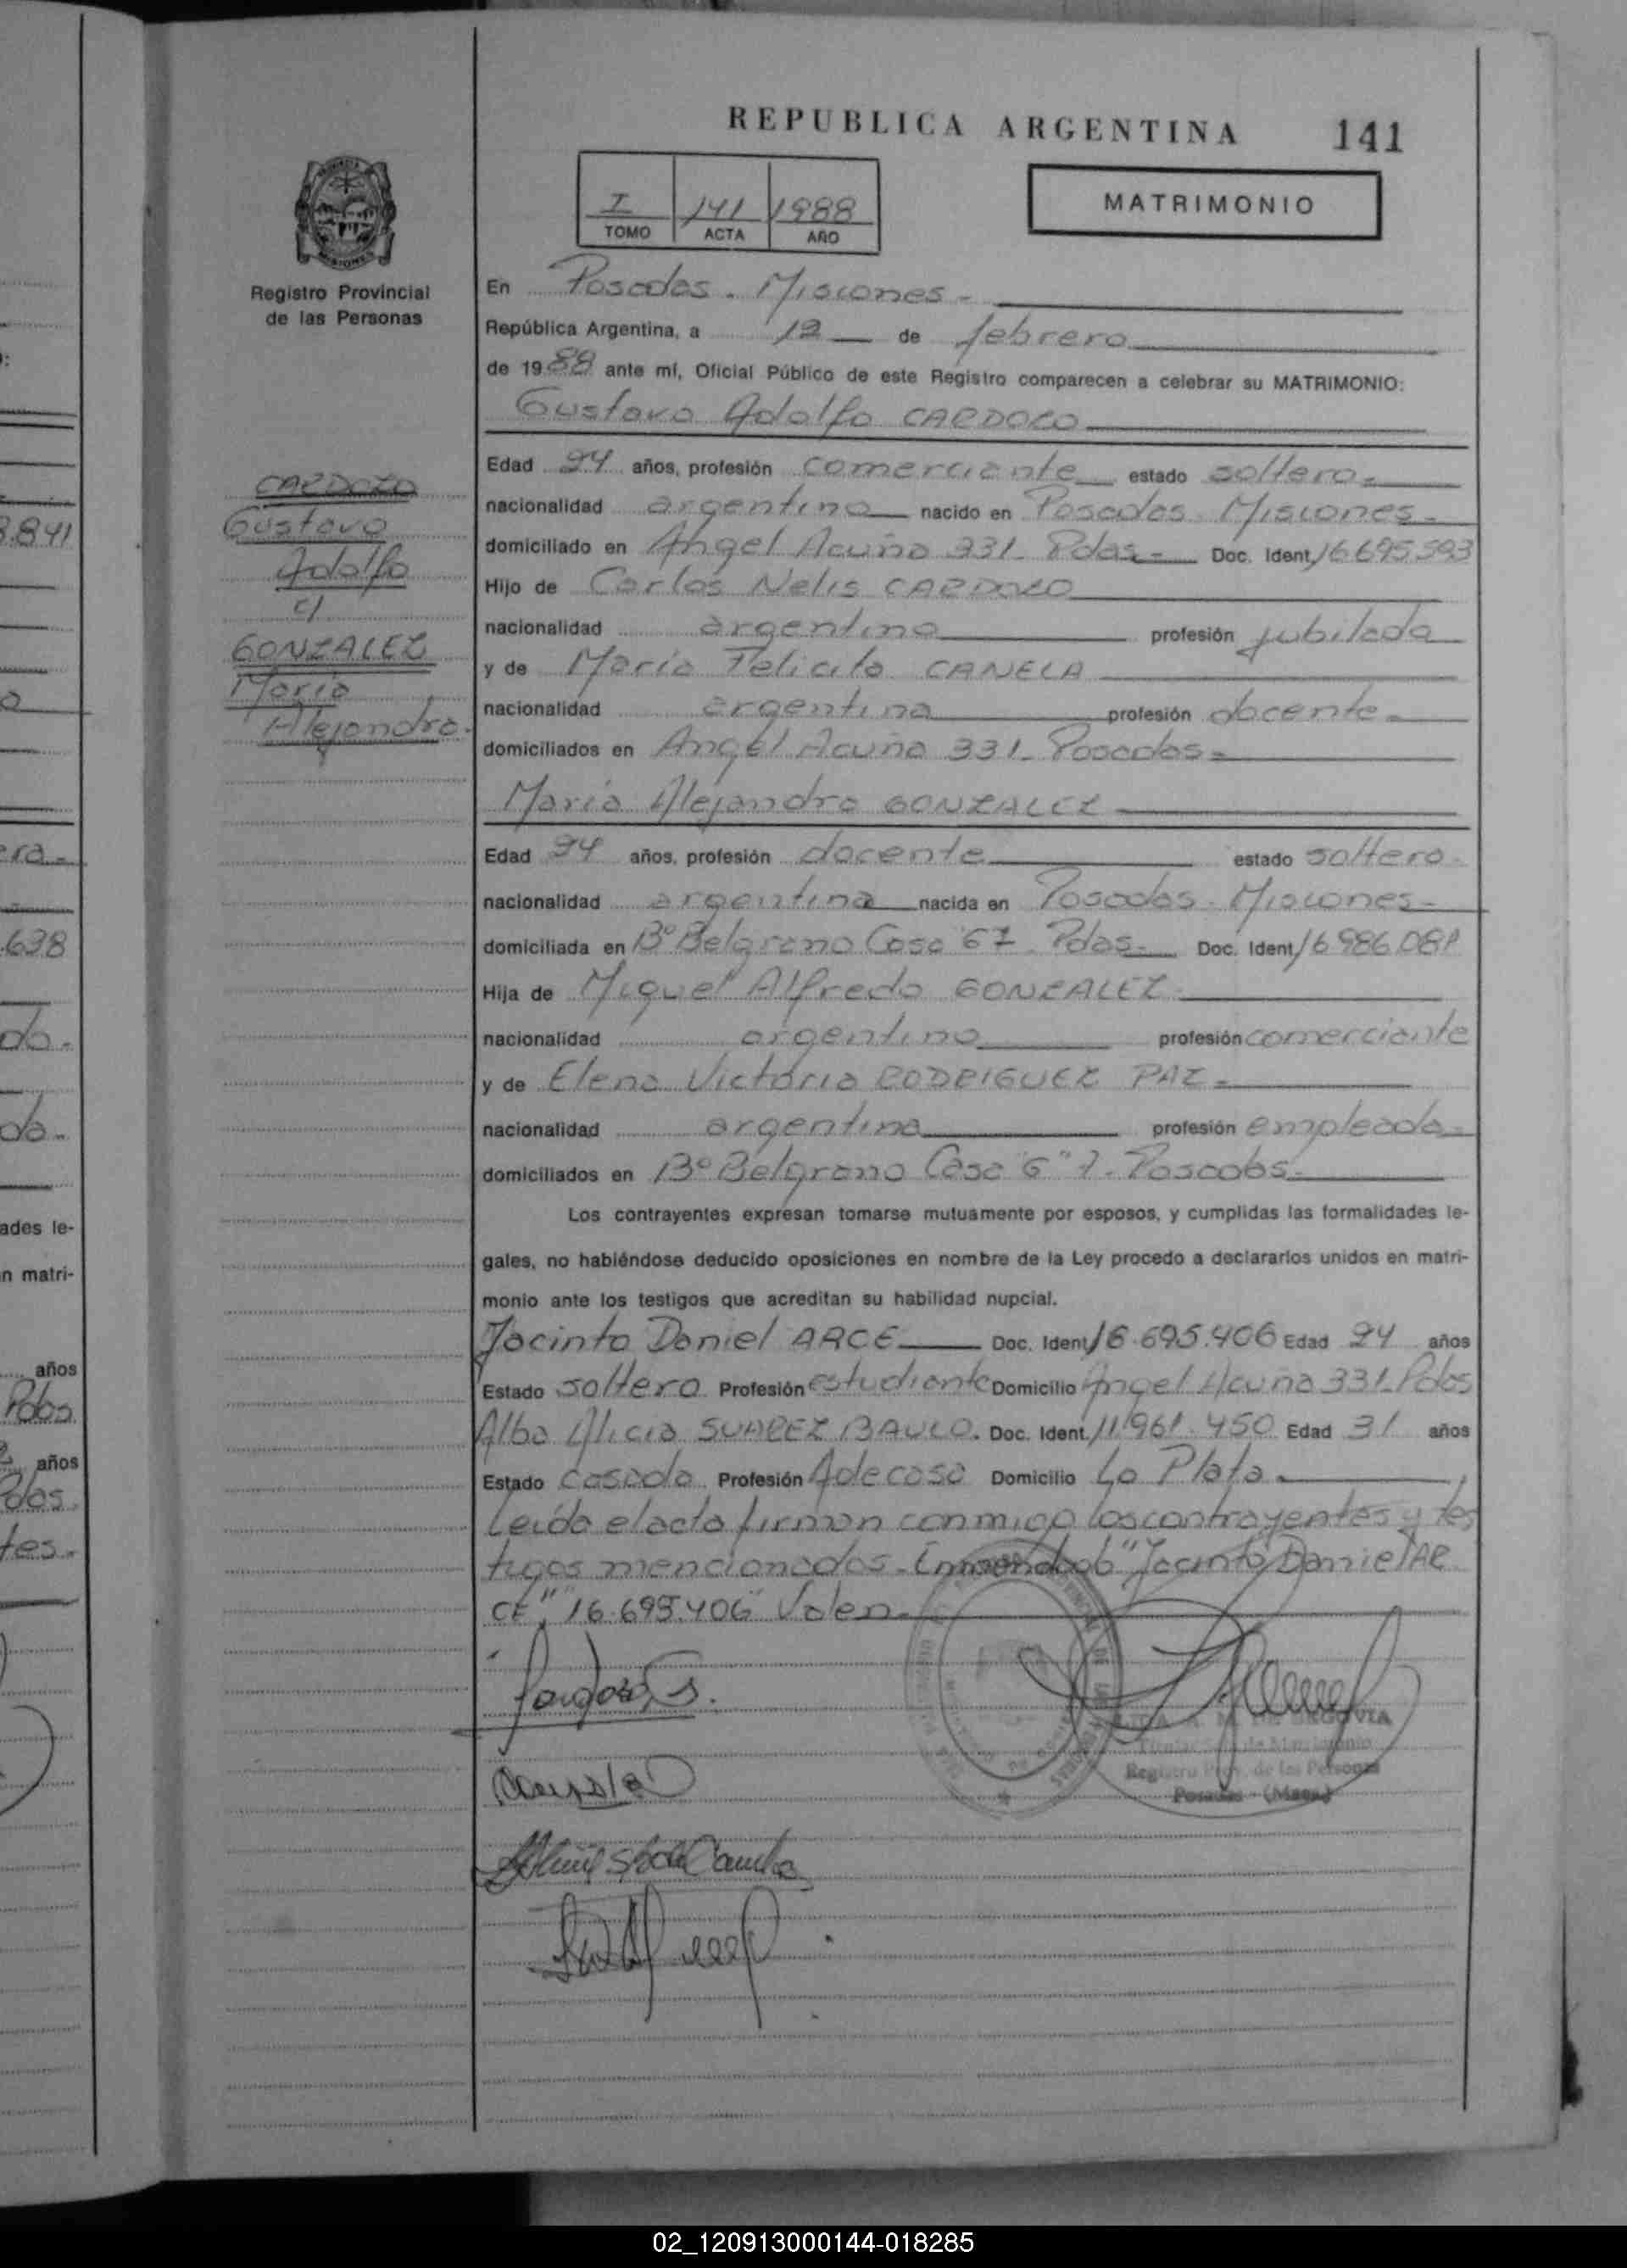 REPUBLICA ARGENTINA 141
I 141 1988
TOMO ACTA AÑO
MATRIMONIO
MISIONES
Registro Provincial
de las Personas
En Posadas - Misiones -
República Argentina, a 12 de febrero
de 1988 ante mí, Oficial Público de este Registro comparecen a celebrar su MATRIMONIO:
Gustavo Adolfo CARDOZO
CARDOZO
Gustavo
Adolfo
c/
GONZALEZ
Maria
Alejandra.
Edad 24 años, profesión comerciante estado soltero.
nacionalidad argentina nacido en Posadas - Misiones -
domiciliado en Angel Acuña 331 - Pdas - Doc. Ident. 16695593
Hijo de Carlos Nelis CARDOZO
nacionalidad argentina profesión jubilado
y de Maria Felicita CANELA
nacionalidad argentina profesión docente -
domiciliados en Angel Acuña 331 - Posadas -
Maria Alejandra GONZALEZ
Edad 24 años, profesión docente estado soltera.
nacionalidad argentina nacida en Posadas - Misiones -
domiciliada en B° Belgrano Casa 67 - Pdas - Doc. Ident. 16986081
Hija de Miguel Alfredo GONZALEZ
nacionalidad argentino profesión comerciante
y de Elena Victoria RODRIGUEZ PAZ -
nacionalidad argentina profesión empleada -
domiciliados en B° Belgrano Casa "6" 7 - Posadas -
Los contrayentes expresan tomarse mutuamente por esposos, y cumplidas las formalidades le-
gales, no habiéndose deducido oposiciones en nombre de la Ley procedo a declararlos unidos en matri-
monio ante los testigos que acreditan su habilidad nupcial.
Jacinto Daniel ARCE Doc. Ident. 16.695.406 Edad 24 años
Estado soltero Profesión estudiante Domicilio Angel Acuña 331 - Pdas
Alba Alicia SUAREZ BAULO. Doc. Ident. 11.961.450 Edad 31 años
Estado casada Profesión A de casa Domicilio La Plata
Leída el acta firman conmigo los contrayentes y tes
tigos mencionados - Enmendado "Jacinto Daniel AR
CE", "16.695.406" Valen.
DE SEGOVIA
de Matrimonio
Registro Prov. de las Personas
Posadas - (Mnes.)
3.841
.638
ades le-
n matri-
años
Pdas
años
Pdas
tes.
02_120913000144-018285